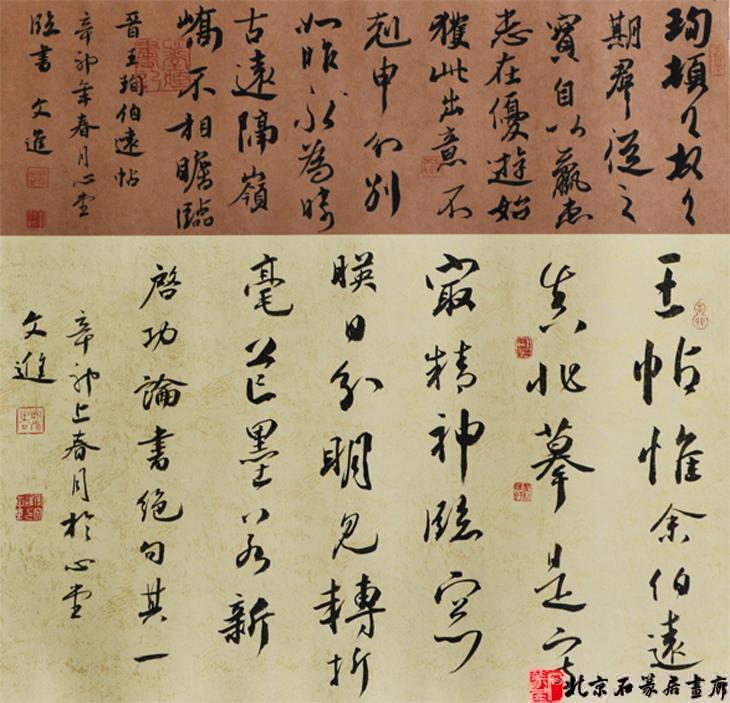 珣頓〻首〻
期群從之
寶自以羸患
志在優遊始
獲此出意不
剋申分別
如昨永為疇
古遠隔嶺
嶠不相瞻臨
晉王珣伯遠帖
辛卯年春月心堂
臨書 文進
王帖惟余伯遠
真非摹是寫
最精神臨窗
映日分明見轉折
毫芒墨若新
啓功論書絕句其一
辛卯上春月於心堂
文進
北京石篆居畫廊